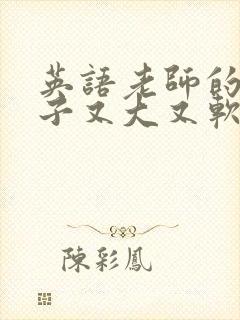 英語老師的
子又大又軟
陳彩鳳